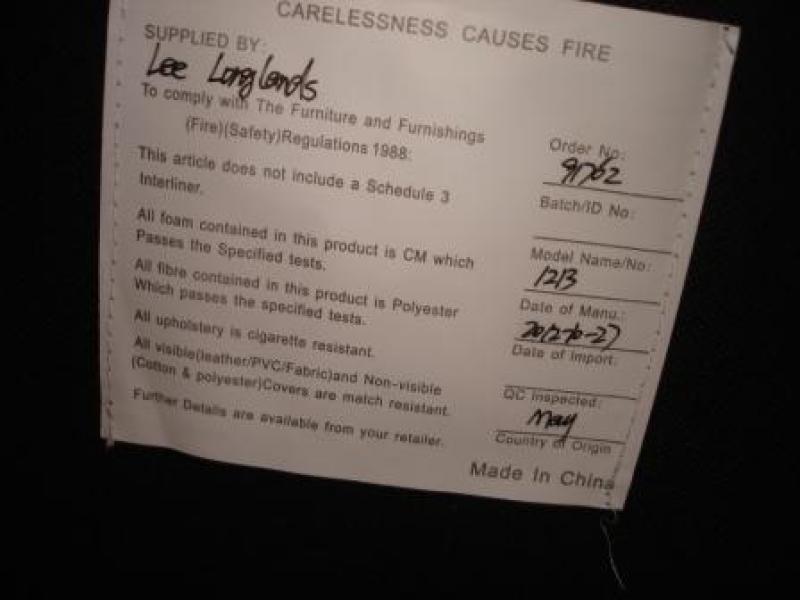 CARELESSNESS CAUSES FIRE
SUPPLIED BY:
Lee Longlands
To comply with The Furniture and Furnishings
(Fire)(Safety)Regulations 1988:
This article does not include a Schedule 3
Interliner.
All foam contained in this product is CM which
Passes the Specified tests.
All fibre contained in this product is Polyester
Which passes the specified tests.
All upholstery is cigarette resistant.
All visible(leather/PVC/Fabric)and Non-visible
(Cotton & polyester)Covers are match resistant.
Further Details are available from your retailer.
Order No:
Batch/ID No:
Model Name/No:
1213
Date of Manu.:
2012-10-27
Date of Import:
QC Inspected:
May
Country of Origin
Made In China